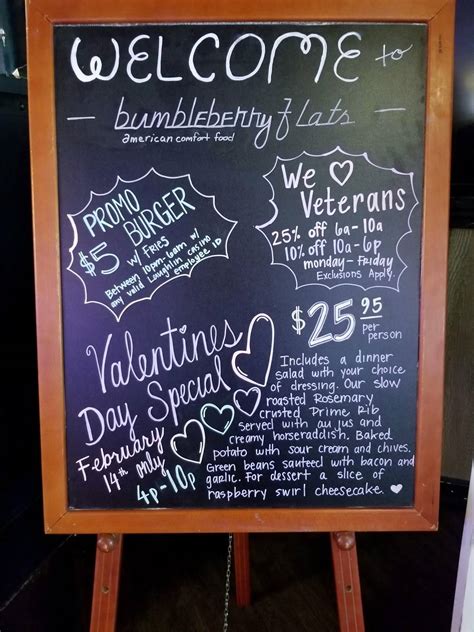 WELCOME to
bumbleberry flats
american comfort food
PROMO
BURGER
$5 w/ FRIES
Between 10pm-6am w/
any valid Laughlin casino
employee ID
We ♡
Veterans
25% off 6a-10a
10% off 10a-6p
monday-Friday
Exclusions Apply.
Valentines
Day Special
February
14th only
4p-10p
$25.95 per person
Includes a dinner
salad with your choice
of dressing. Our slow
roasted Rosemary
crusted Prime Rib
Served with au jus and
creamy horseraddish. Baked
potato with sour cream and chives.
Green beans sauteed with bacon and
garlic. For dessert a slice of
raspberry swirl cheesecake. ♥